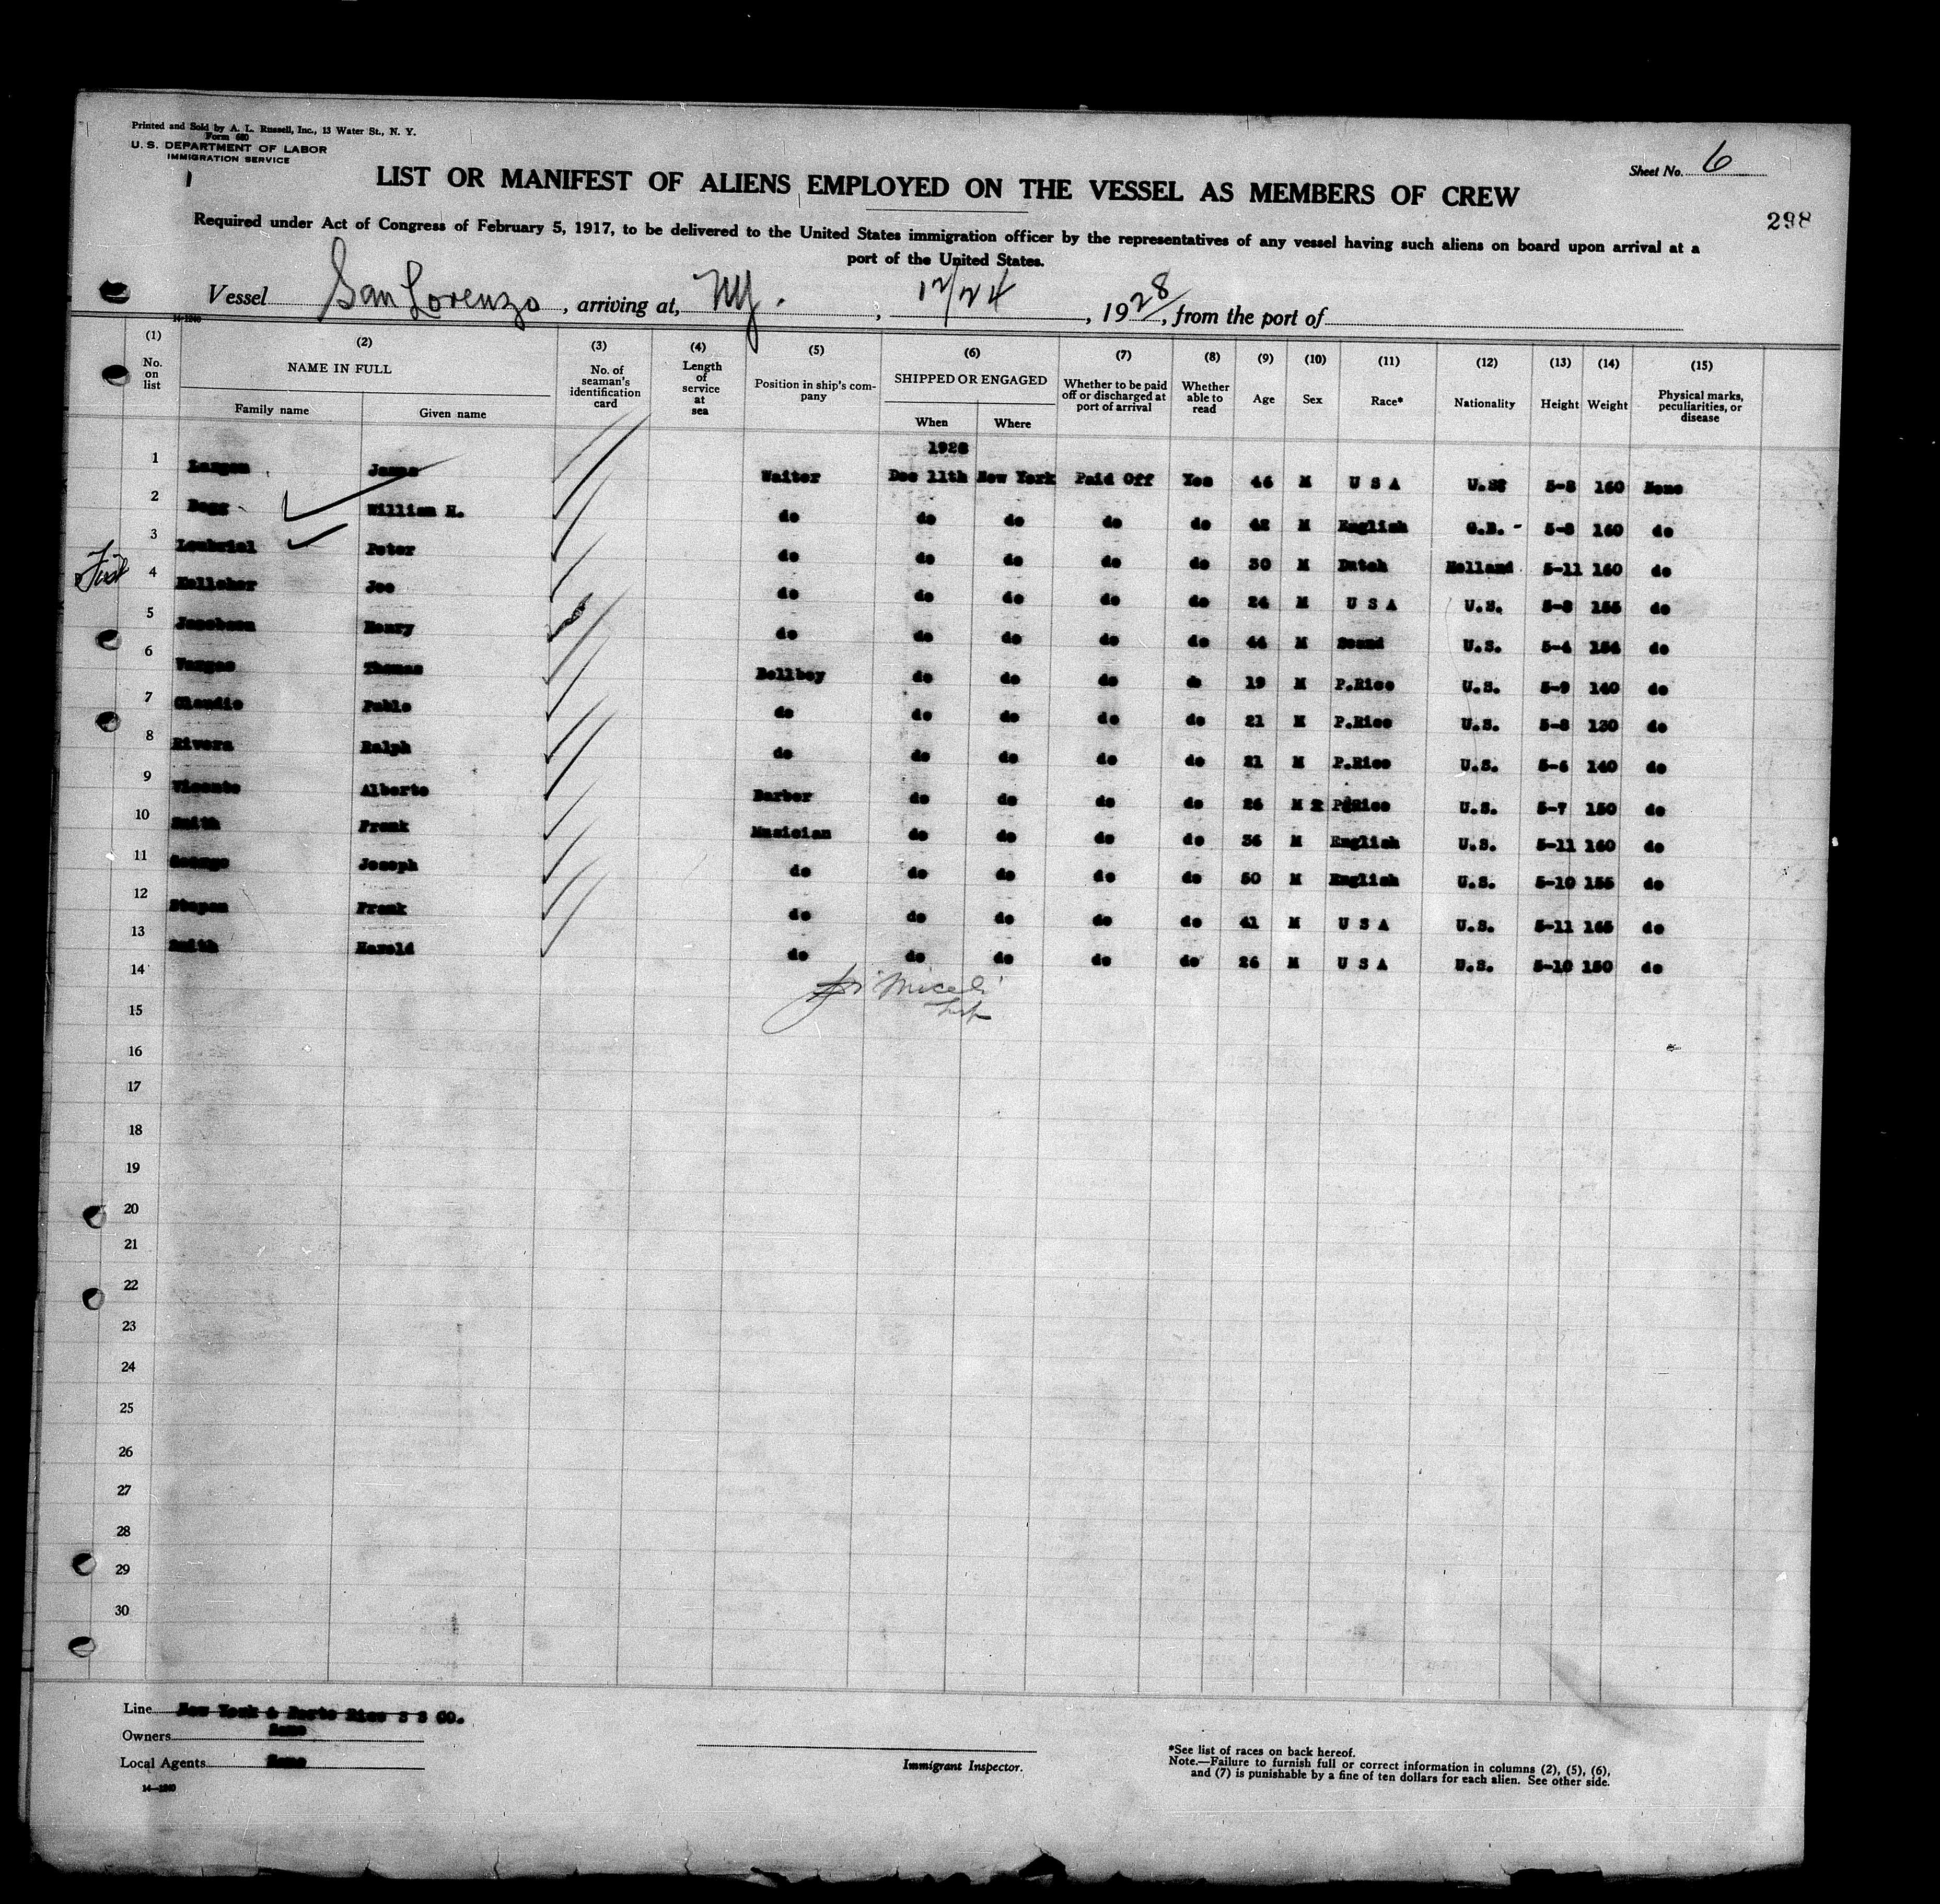 Printed and Sold by A. L. Russell, Inc., 13 Water St., N. Y.
Form 680
U. S. DEPARTMENT OF LABOR
IMMIGRATION SERVICE
Sheet No. 6
LIST OR MANIFEST OF ALIENS EMPLOYED ON THE VESSEL AS MEMBERS OF CREW
298
Required under Act of Congress of February 5, 1917, to be delivered to the United States immigration officer by the representatives of any vessel having such aliens on board upon arrival at a
port of the United States.
Vessel San Lorenzo, arriving at, NY., 12/24, 1928, from the port of
14-1240
(1) (2) (3) (4) (5) (6) (7) (8) (9) (10) (11) (12) (13) (14) (15)
No. on list NAME IN FULL No. of seaman's identification card Length of service at sea Position in ship's company SHIPPED OR ENGAGED Whether to be paid off or discharged at port of arrival Whether able to read Age Sex Race* Nationality Height Weight Physical marks, peculiarities, or disease
Family name Given name When Where
1928
1 James Waiter Dec 11th New York Paid Off Yes 46 M U S A U.S. 5-8 160 None
2 Begg William H. do do do do do 42 M English G.B. - 5-8 160 do
3 Peter do do do do do 30 M Dutch Holland 5-11 160 do
First
4 Kelleher Joe do do do do do 24 M U S A U.S. 5-8 155 do
5 Jacobsen Henry do do do do do 44 M Scand U.S. 5-4 154 do
6 Vargas Thomas Bellboy do do do do 19 M P.Rico U.S. 5-9 140 do
7 Claudio Pablo do do do do do 21 M P.Rico U.S. 5-8 130 do
8 Rivera Ralph do do do do do 21 M P.Rico U.S. 5-6 140 do
9 Vicente Alberto Barber do do do do 26 M P.Rico U.S. 5-7 150 do
10 Smith Frank Musician do do do do 36 M English U.S. 5-11 160 do
11 Joseph do do do do do 50 M English U.S. 5-10 155 do
12 Frank do do do do do 41 M U S A U.S. 5-11 165 do
13 Smith Harold do do do do do 26 M U S A U.S. 5-10 150 do
14
Miceli
Insp
15
16
17
18
19
20
21
22
23
24
25
26
27
28
29
30
Line New York & Porto Rico S S CO.
Owners Same
Local Agents Same
14-1240
Immigrant Inspector.
*See list of races on back hereof.
Note.—Failure to furnish full or correct information in columns (2), (5), (6),
and (7) is punishable by a fine of ten dollars for each alien. See other side.